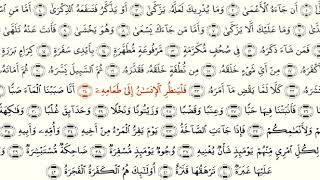 أَن جَآءَهُ ٱلْأَعْمَىٰ ۝ وَمَا يُدْرِيكَ لَعَلَّهُۥ يَزَّكَّىٰٓ ۝ أَوْ يَذَّكَّرُ فَتَنفَعَهُ ٱلذِّكْرَىٰٓ
وَمَا عَلَيْكَ أَلَّا يَزَّكَّىٰ ۝ وَأَمَّا مَن جَآءَكَ يَسْعَىٰ ۝ وَهُوَ يَخْشَىٰ ۝ فَأَنتَ عَنْهُ تَلَهَّىٰ
فَمَن شَآءَ ذَكَرَهُۥ ۝ فِى صُحُفٍ مُّكَرَّمَةٍ ۝ مَّرْفُوعَةٍ مُّطَهَّرَةٍۭ ۝ بِأَيْدِى سَفَرَةٍ ۝ كِرَامٍۭ بَرَرَةٍ
أَكْفَرَهُۥ ۝ مِنْ أَىِّ شَىْءٍ خَلَقَهُۥ ۝ مِن نُّطْفَةٍ خَلَقَهُۥ فَقَدَّرَهُۥ ۝ ثُمَّ ٱلسَّبِيلَ يَسَّرَهُۥ ۝ ثُمَّ أَمَاتَهُۥ
كَلَّا لَمَّا يَقْضِ مَآ أَمَرَهُۥ ۝ فَلْيَنظُرِ ٱلْإِنسَٰنُ إِلَىٰ طَعَامِهِۦٓ ۝ أَنَّا صَبَبْنَا ٱلْمَآءَ صَبًّا
فَأَنۢبَتْنَا فِيهَا حَبًّا ۝ وَعِنَبًا وَقَضْبًا ۝ وَزَيْتُونًا وَنَخْلًا ۝ وَحَدَآئِقَ غُلْبًا ۝
وَلِأَنْعَٰمِكُمْ ۝ فَإِذَا جَآءَتِ ٱلصَّآخَّةُ ۝ يَوْمَ يَفِرُّ ٱلْمَرْءُ مِنْ أَخِيهِ ۝ وَأُمِّهِۦ وَأَبِيهِ
لِكُلِّ ٱمْرِئٍ مِّنْهُمْ يَوْمَئِذٍ شَأْنٌ يُغْنِيهِ ۝ وُجُوهٌ يَوْمَئِذٍ مُّسْفِرَةٌ ۝ ضَاحِكَةٌ مُّسْتَبْشِرَةٌ
عَلَيْهَا غَبَرَةٌ ۝ تَرْهَقُهَا قَتَرَةٌ ۝ أُو۟لَٰٓئِكَ هُمُ ٱلْكَفَرَةُ ٱلْفَجَرَةُ